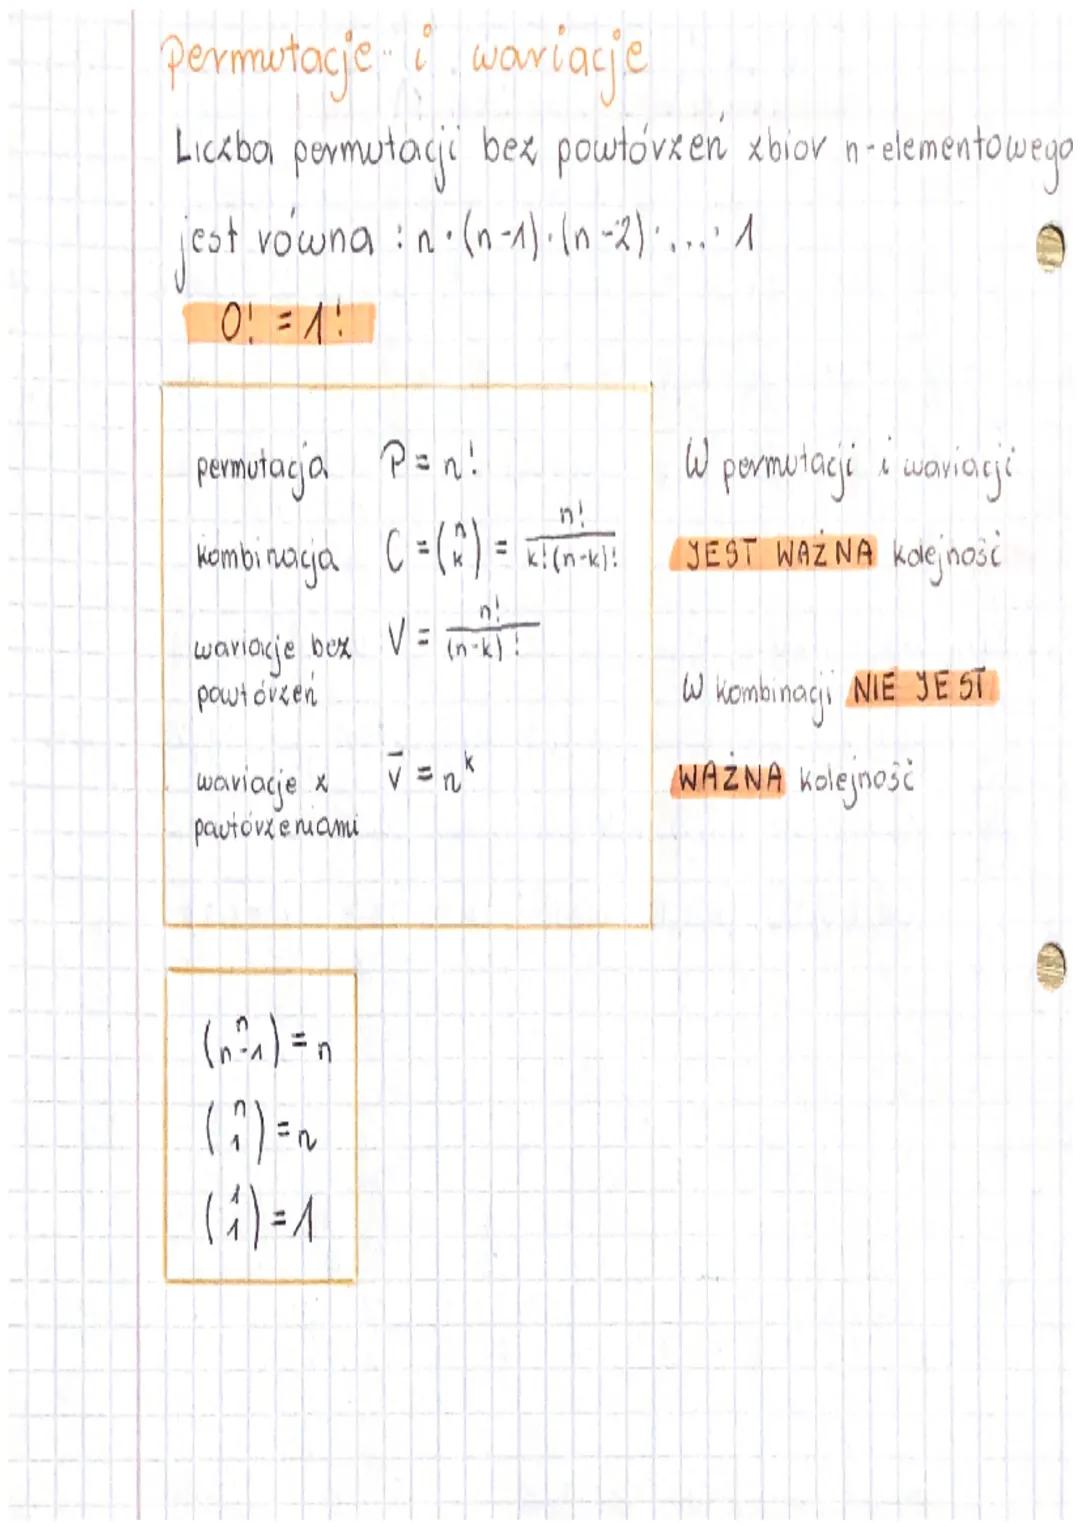 permutacje i wariacje
Liczba permutacji bez powtórzeń zbior n-elementowego
jest równa : n · (n-1) · (n-2) · ... · 1
0! = 1!
permutacja P = n!
kombinacja C = (n k) = n! / k!(n-k)!
wariacje bez powtórzeń V = n! / (n-k)!
wariacje z powtórzeniami V̄ = n^k
W permutacji i wariacji
JEST WAŻNA kolejność
W kombinacji NIE JEST
WAŻNA kolejność
(n n-1) = n
(n 1) = n
(1 1) = 1